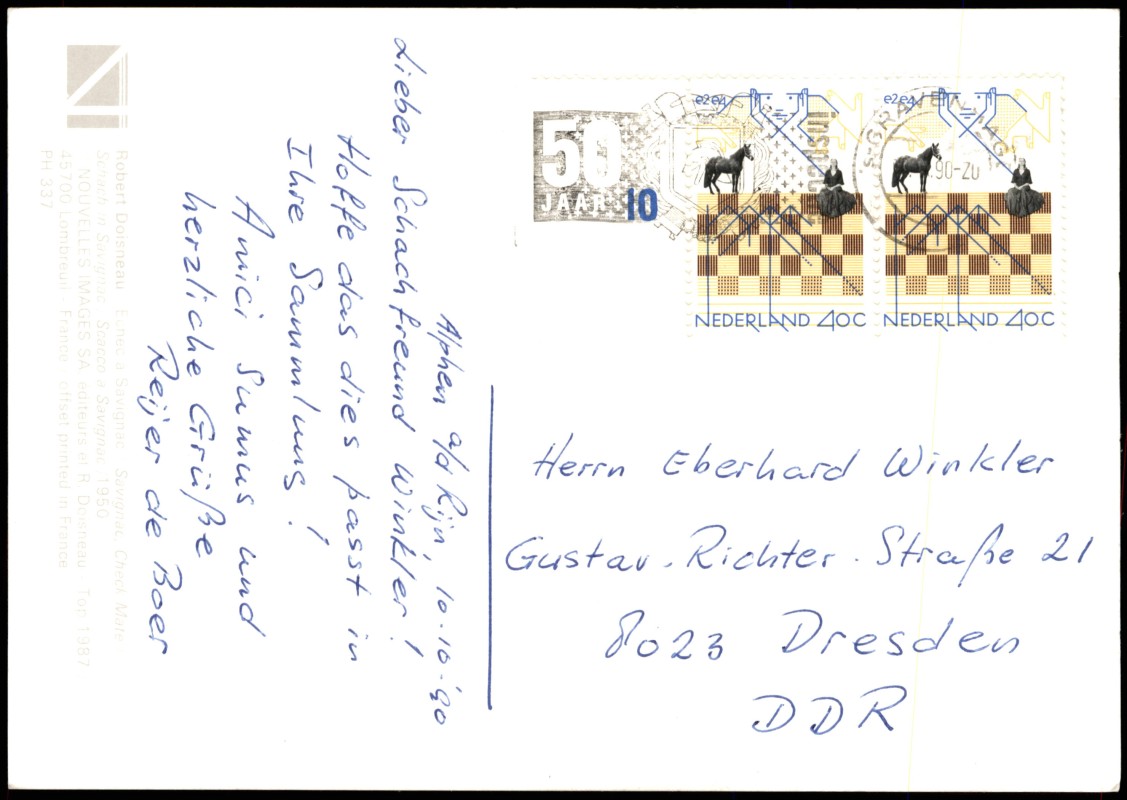 Alphen a/d Rijn, 10-10-'90
Lieber Schachfreund Winkler!
Hoffe das dies passt in
Ihre Sammlung!
Amici Sumus und
herzliche Grüße
Reijer de Boer
Herrn Eberhard Winkler
Gustav-Richter-Straße 21
8023 Dresden
DDR
50
JAAR
10
'S-GRAVENHAGE
90-20
e2e4
NEDERLAND 40C
e2e4
NEDERLAND 40C
Robert Doisneau Echec à Savignac Savignac, Check Mate
Schach in Savignac Scacco a Savignac 1950
NOUVELLES IMAGES S.A. éditeurs et R. Doisneau - Tor 1987
45700 Lombreuil - France offset printed in France
PH 337